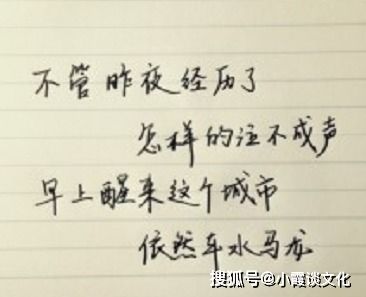 不管昨夜经历了
怎样的泣不成声
早上醒来这个城市
依然车水马龙
搜狐号@小霞谈文化